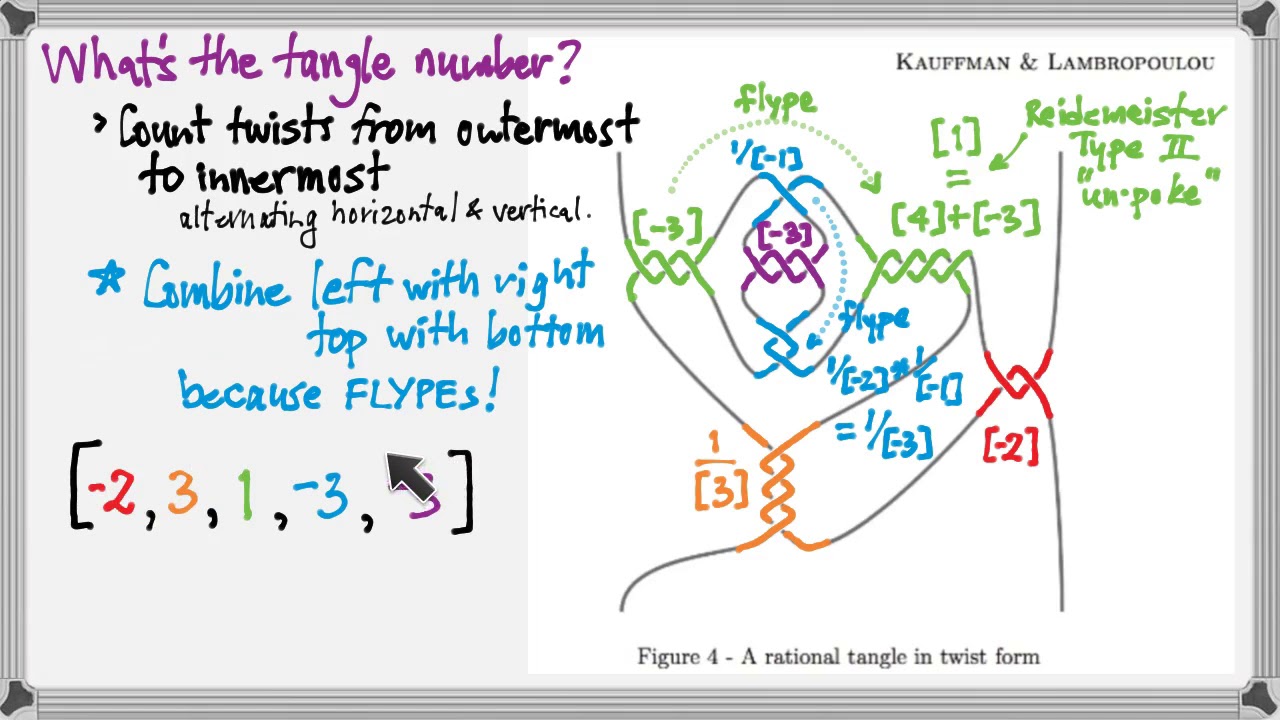 What's the tangle number?
> Count twists from outermost
to innermost
alternating horizontal & vertical.
* Combine left with right
top with bottom
because FLYPEs!
[-2, 3, 1, -3, 3]
KAUFFMAN & LAMBROPOULOU
flype
1/[-1]
[1]
=
[4]+[-3]
Reidemeister
Type II
"un-poke"
[-3]
[-3]
flype
1/[-2] * 1/[-1]
= 1/[-3]
1
[3]
[-2]
Figure 4 - A rational tangle in twist form